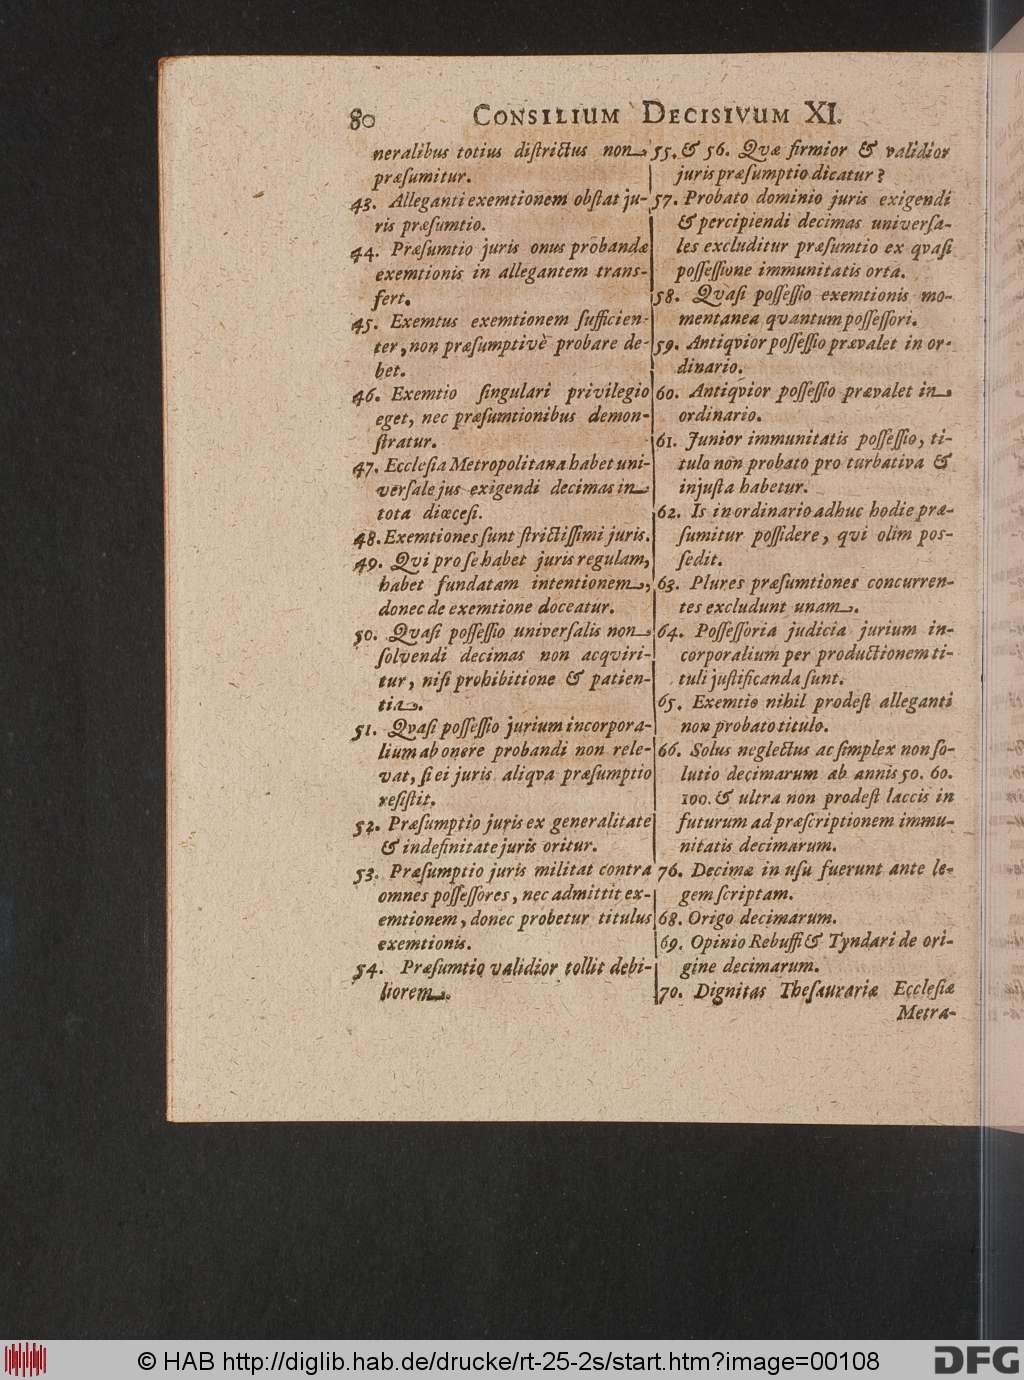 80 CONSILIUM DECISIVUM XI.
neralibus totius diſtrictus non
præſumitur.
43. Alleganti exemtionem obſtat ju-
ris præſumtio.
44. Præſumtio juris onus probandæ
exemtionis in allegantem trans-
fert.
45. Exemtus exemtionem ſufficien-
ter, non præſumptivè probare de-
bet.
46. Exemtio ſingulari privilegio
eget, nec præſumtionibus demon-
ſtratur.
47. Eccleſia Metropolitana habet uni-
verſale jus exigendi decimas in
tota diœceſi.
48. Exemtiones ſunt ſtrictiſſimi juris.
49. Qvi pro ſe habet juris regulam,
habet fundatam intentionem,
donec de exemtione doceatur.
50. Qvaſi poſſeſſio univerſalis non
ſolvendi decimas non acqviri-
tur, niſi prohibitione & patien-
tia.
51. Qvaſi poſſeſſio jurium incorpora-
lium ab onere probandi non rele-
vat, ſi ei juris aliqva præſumptio
reſiſtit.
52. Præſumptio juris ex generalitate
& indefinitate juris oritur.
53. Præſumptio juris militat contra
omnes poſſeſſores, nec admittit ex-
emtionem, donec probetur titulus
exemtionis.
54. Præſumtio validior tollit debi-
liorem.
55. & 56. Qvæ firmior & validior
juris præſumptio dicatur?
57. Probato dominio juris exigendi
& percipiendi decimas univerſa-
les excluditur præſumtio ex qvaſi
poſſeſſione immunitatis orta.
58. Qvaſi poſſeſſio exemtionis mo-
mentanea qvantum poſſeſſori.
59. Antiqvior poſſeſſio prævalet in or-
dinario.
60. Antiqvior poſſeſſio prævalet in
ordinario.
61. Junior immunitatis poſſeſſio, ti-
tulo non probato pro turbativa &
injuſta habetur.
62. Is in ordinario adhuc hodie præ-
ſumitur poſſidere, qvi olim poſ-
ſedit.
63. Plures præſumtiones concurren-
tes excludunt unam.
64. Poſſeſſoria judicia jurium in-
corporalium per productionem ti-
tuli juſtificanda ſunt.
65. Exemtio nihil prodeſt alleganti
non probato titulo.
66. Solus neglectus ac ſimplex non ſo-
lutio decimarum ab annis 50. 60.
100. & ultra non prodeſt laccis in
futurum ad præſcriptionem immu-
nitatis decimarum.
76. Decimæ in uſu fuerunt ante le-
gem ſcriptam.
68. Origo decimarum.
69. Opinio Rebuffi & Tyndari de ori-
gine decimarum.
70. Dignitas Theſaurariæ Eccleſiæ
Metra-
© HAB http://diglib.hab.de/drucke/rt-25-2s/start.htm?image=00108
DFG